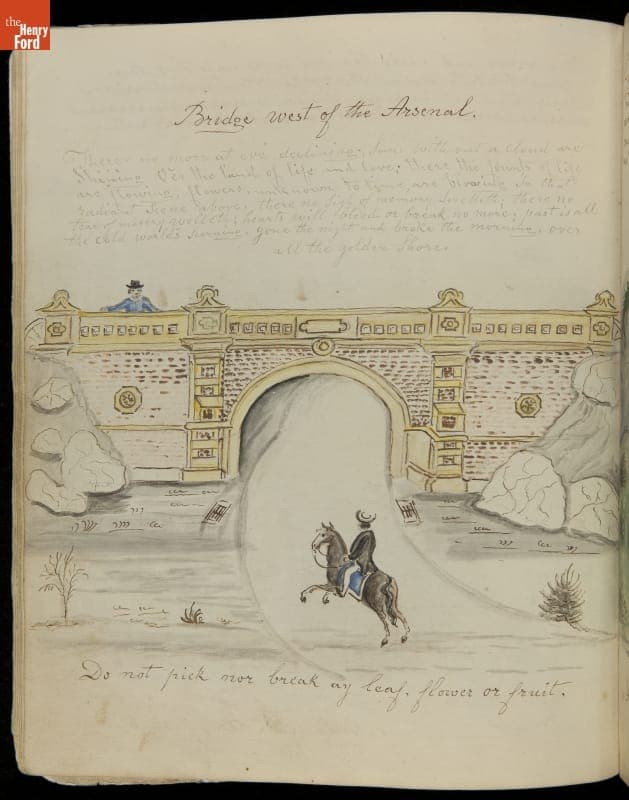 the
Henry
Ford
Bridge west of the Arsenal.
There no more at eve declining, Suns without a cloud are
Shining O'er the land of life and love; there the founts of life
are flowing, flowers, unknown to time, are blowing In that
radiant scene above; there no sigh of memory swelleth; there no
tear of misery welleth; hearts will bleed or break no more; past is all
the cold world's scorning, gone the night and broke the morning, over
all the golden Shore.
Do not pick nor break ay leaf, flower or fruit.